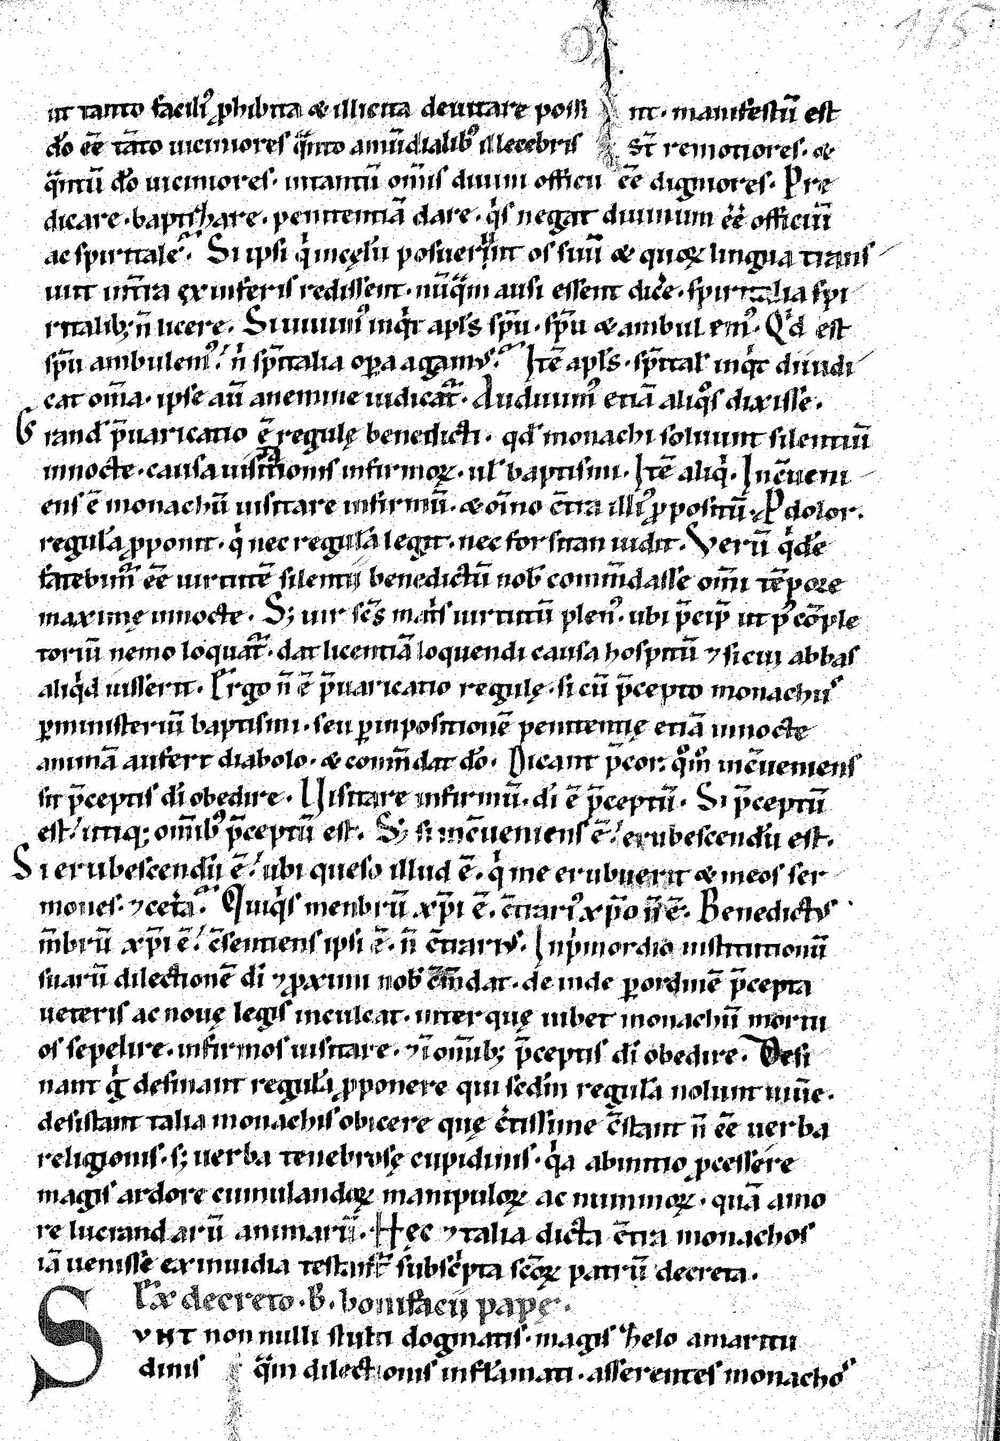 115
ut tanto facili᷒ ꝓhibita & illicita deuitare possi nt · manifestū est
dō eē tāto uiciniores q̄nto amūdialib᷒ illecebris st̄ remotiores · &
q̄ntū dō uiciniores · intantū om̄is diuini officii eē digniores · Pre
dicare · baptizare · penitentiā dare · q̇s negat diuinum eē officiū
ac spiritale · Si ipsi q̇ in cęlū posuerunt os suū & quoꝝ lingua trans
iuit int̄ra ex inferis redissent · nūq̄m ausi essent dic̄e · spiritalia spi
ritalib; n̄ licere · Si uiuim᷒ inq̇t apl̄s sp̄u · sp̄u & ambulem᷒ · Qd̄ est
sp̄u ambulem᷒ / n̄ sp̄italia oꝑa agam᷒ · Itē apl̄s · sp̄ital̄ inq̇t diiudi
cat om̄a · ipse aū anemine iudicat᷑ · Audiuim᷒ etiā aliq̇s dixisse ·
Grand̄ p̄uaricatio ē regulę benedicti · qd̄ monachi soluunt silentiū
innocte · causa uisitationis infirmoꝝ · ul̄ baptismi · Itē aliq̇ · Incueni
ens ē monachū uisitare infirmū · & oīno c̄tra illi᷒ ꝓpositū · P dolor ·
regulā ꝓponit · q̇ nec regulā legit · nec forsitan uidit · Verū q̇dē
fatebim᷑ eē uirtutē silentii benedictū nob̄ com̄dasse om̄i tēpore
maximę innocte · S; uir sc̄s mat̄s uirtutū plen᷒ · ubi p̄cip̄ ut p᷒ cōple
toriū nemo loquat᷑ · dat licentiā loquendi causa hospitū ⁊ si cui abbas
aliq̇d iusserit · Ergo n̄ ē p̄uaricatio regulę · si cū p̄cepto monachus
ꝑ ministeriū baptismi · seu ꝑ inpositionē penitentię etiā innocte
animā aufert diabolo · & com̄dat dō · Dicant p̄cor: q̇m̊ incueniens
sit p̄ceptis dī obedire · Uisitare infirmū · dī ē p̄ceptū · Si p̄ceptū
est / utiq; omib᷒ p̄ceptū est · S; si incueniens ē / erubescendū est ·
Si erubescendū ē / ubi queso illud ē · q̇ me erubuerit & meos ser
mones · ⁊ ceṫa · Quiq̇s menbrū xp̄i ē · c̄trari᷒ xp̄o n̄ ē · Benedictus
m̄brū xp̄i ē / c̄sentiens ipsi ē · n̄ c̄trarius · In ṗmordio institutionū
suarū dilectionē dī ⁊ ꝓximi nob̄ cm̄dat · de inde ꝑ ordinē p̄cepta
ueteris ac nouę legis inculcat · inter quę iubet monachū mortu
os sepelire · infirmos uisitare · ⁊ ī om̄ib; p̄ceptis dī obedire · Desi
nant ġ desinant regulā ꝓponere qui sedm̄ regulā nolunt uiu̅e ·
desistant talia monachis obicere quę c̄tissime c̄stant n̄ eē uerba
religionis · s; uerba tenebrosę cupidinis · q̇a abinitio ꝓcessere
magis ardore cumulandoꝝ manipuloꝝ ac nummoꝝ · quā amo
re lucrandarū animarū · Hęc ⁊ talia dicta c̄tra monachos
iā uenisse ex inuidia testant᷑ subsc̄pta sc̄oꝝ patrū decreta ·
Ex decreto · b̄ · bonifacii papę ·
SVNT non nulli stulti dogmatis · magis zhelo amaritu
dinis q̄m dilectionis inflamati · asserentes monachos